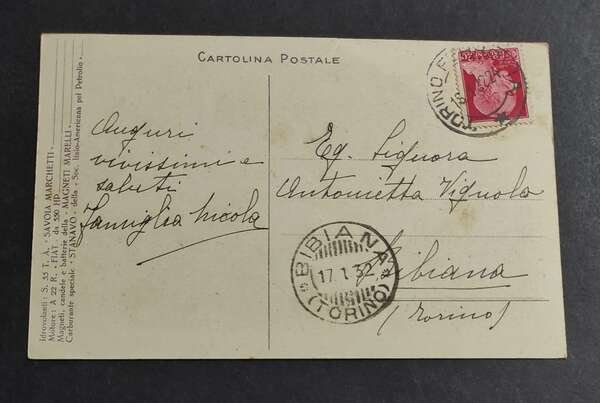 CARTOLINA POSTALE
Idrovolanti: S. 55 T. A. - SAVOIA MARCHETTI -
Motore: A 22 R. - FIAT - da 550 HP
Magneti, candele e batterie della - MAGNETI MARELLI -
Carburante speciale - STANAVO - della - Soc. Italo-Americana pel Petrolio -
Auguri
vivissimi e
saluti
Famiglia Nicola
TORINO
Eg. Signora
Antonietta Vignola
Bibiana
(Torino)
BIBIANA
17.1.32
(TORINO)